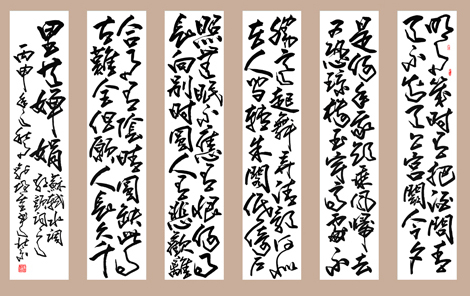 明月幾時有把酒問青
天不知天上宮闕今夕
是何年我欲乘風歸去
又恐瓊樓玉宇高處不
勝寒起舞弄清影何似
在人間轉朱閣低綺戶
照無眠不應有恨何事
長向別時圓人有悲歡離
合月有陰晴圓缺此事
古難全但願人長久千
里共嬋娟
蘇軾水調
歌頭詞
丙申年之秋